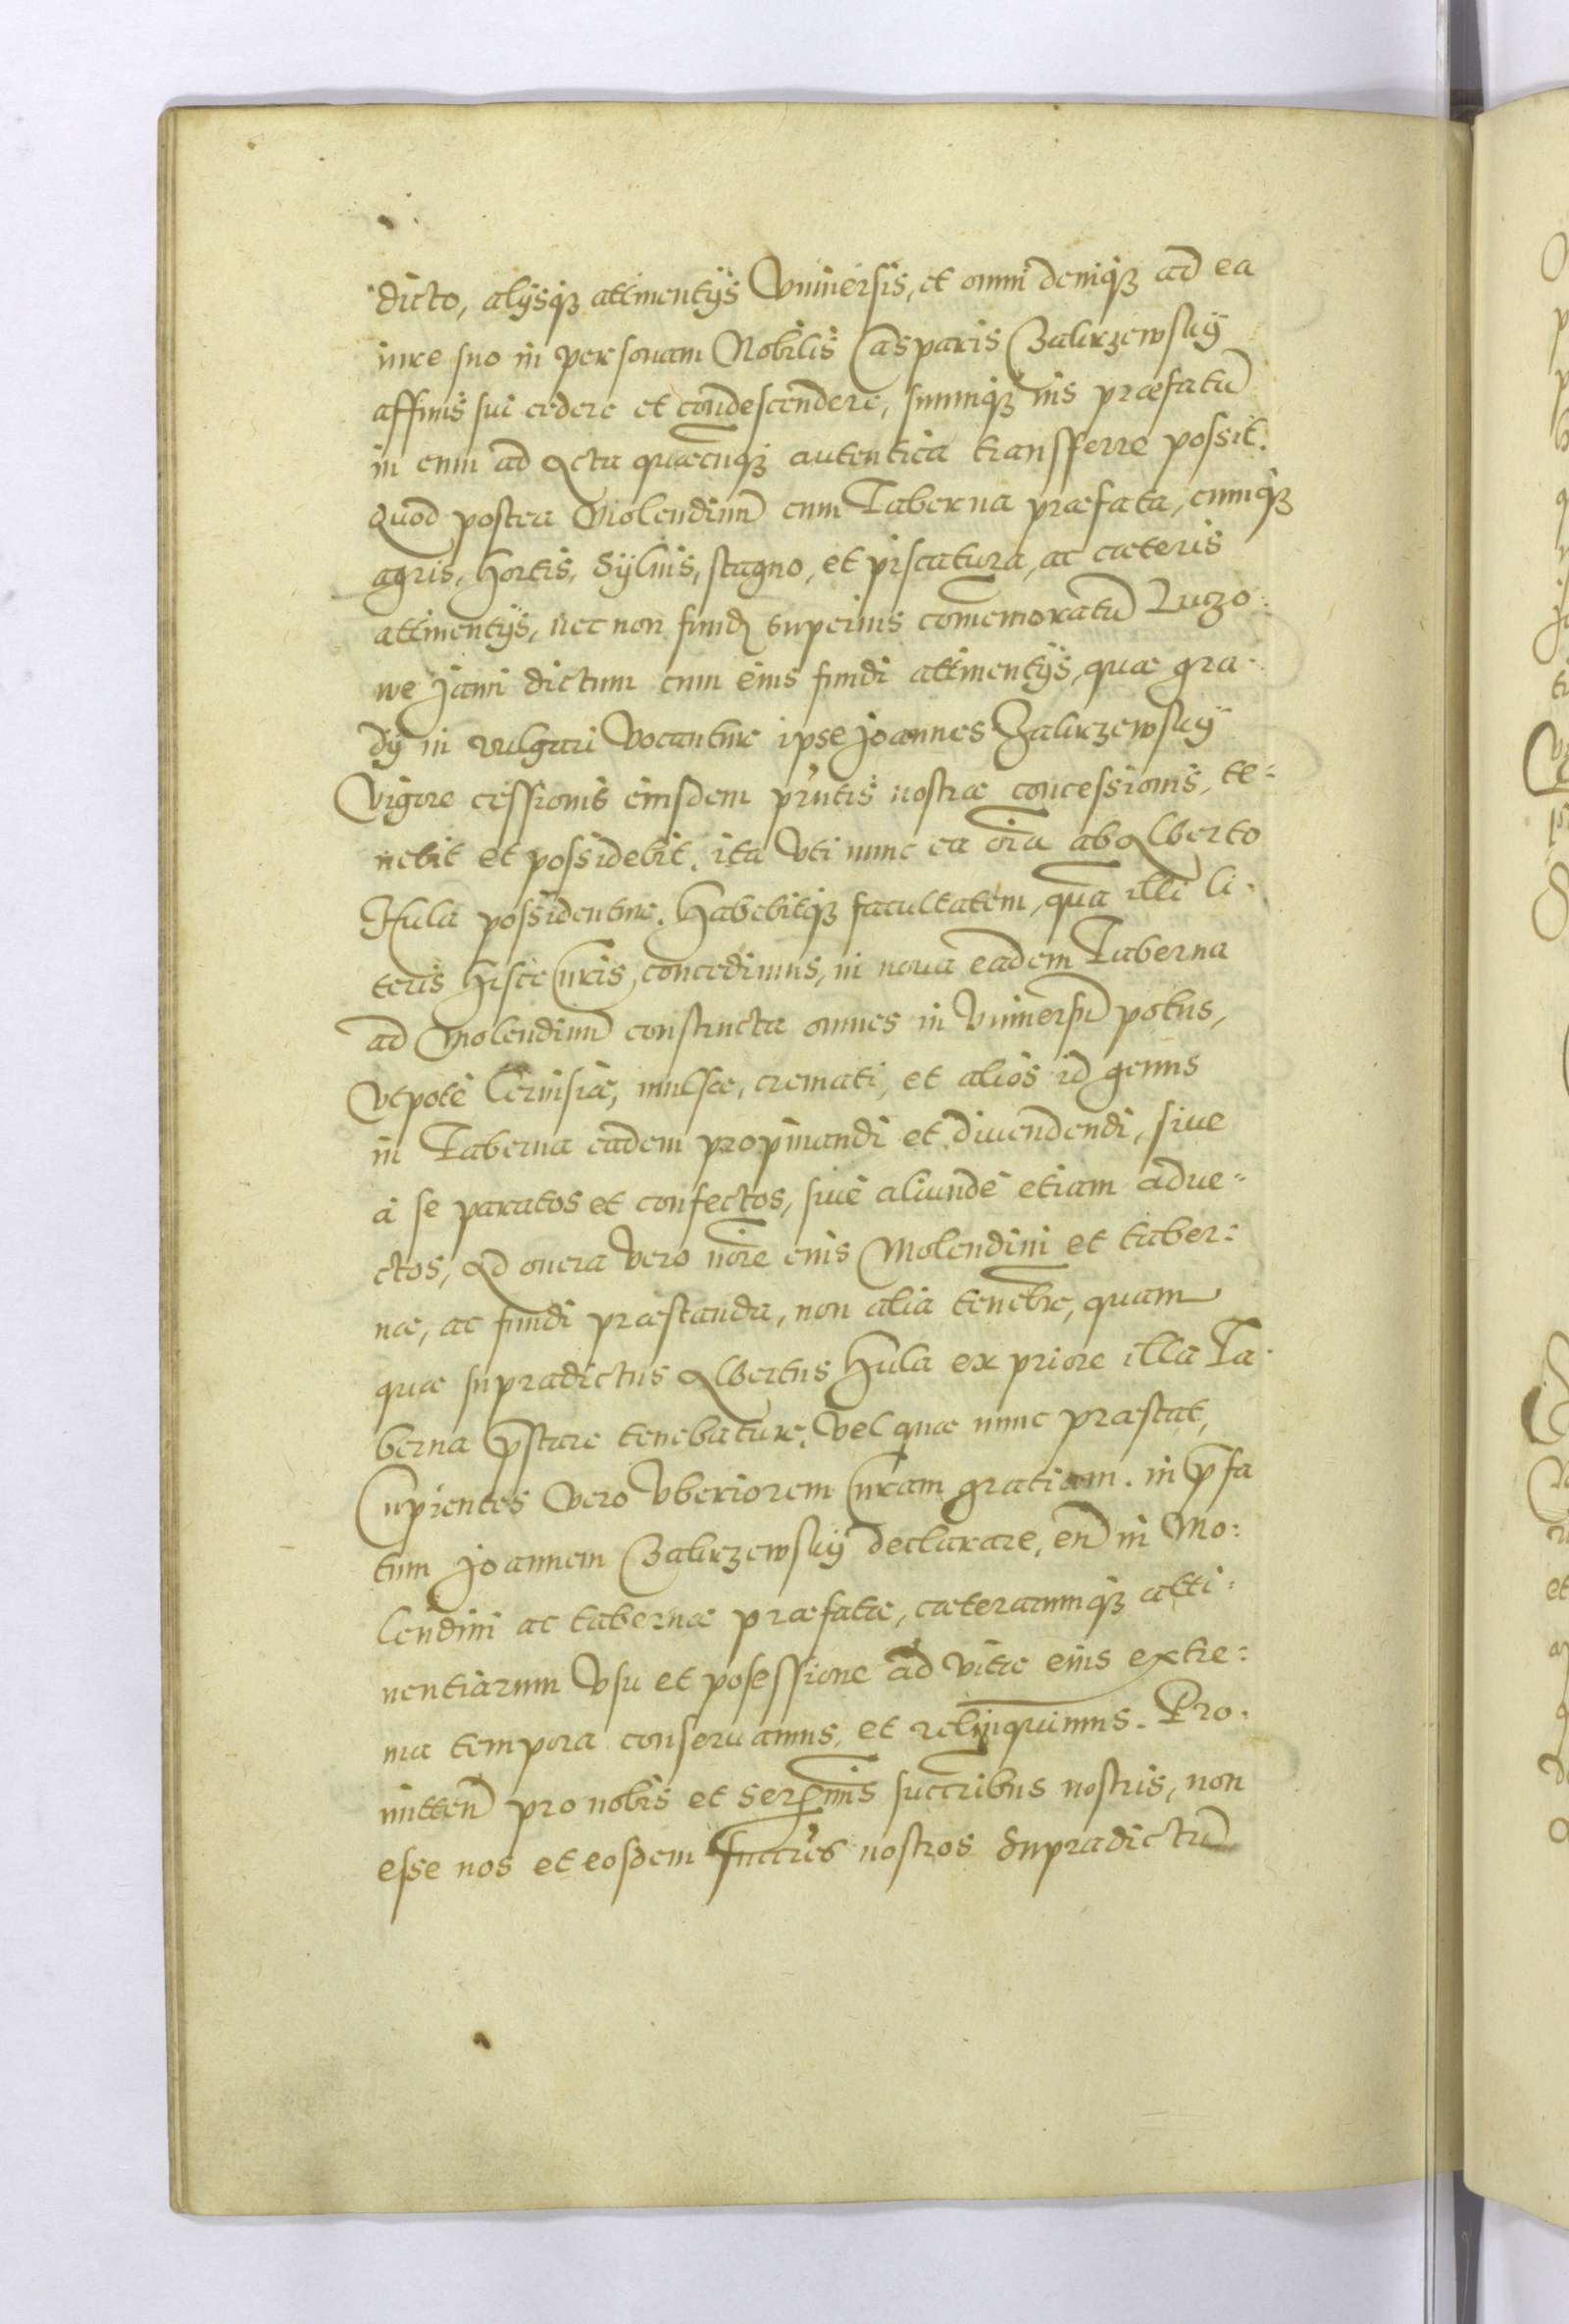 dicto, alijsq₃ attinentijs Vniuersis, et omni deniq₃ ad ea
iure suo in personam Nobilis Casparis Zakrzewskÿ
affinis sui cedere et condescendere, suumq₃ ius præfatū
in eum ad Acta quæcūq₃ autentica transferre possit.
Quod postea Molendinū cum Taberna præfata, cumq₃
agris, hortis, Sÿluis, stagno, et piscatura, ac cæteris
attinentijs, nec non fundū superius comemoratū Luzo:
we jam dictum cum eius fundi attinentijs, quæ gra-
dÿ in vulgari Vocantur ipse Joannes Zakrzewskÿ
Vigore cessionis eiusdem prn̄tis nostræ concessionis, te=
nebit et possidebit, ita vti nunc ea oīa ab Alberto
Hula possidentur. Habebitq₃ facultatem, quā illi li-
teris hisce nr̄is, concedimus, in noua eadem Taberna
ad Molendinū constructa omnes in Vniuersū potus,
Vtpote Ceruisiæ, mulsæ, cremati, et alios id genus
in Taberna eadem propinandi et diuendendi, siue
à se paratos et confectos, siue aliunde etiam adue=
ctos, Ad onera Vero nōie eius Molendini et taber=
næ, ac fundi præstanda, non alia tenebr̄, quam
quæ supradictus Albertus Hula ex priore illa Ta-
berna p̄stare tenebatur, Vel quæ nunc præstat,
Cupientes Vero Vberiorem nr̄am gratiam in p̄fa
tum Joannem Zakrzewskÿ declarare, eū in Mo:
lendini ac tabernæ præfatæ, cæterarumq₃ atti=
nentiarum Vsu et posessione ad vitæ eius extre=
ma tempora conseruamus, et relinquimus. Pro-
mitten̄ pro nobis et Serr̄mis succr̄ibus nostris, non
esse nos et eosdem succr̄es nostros Supradictū